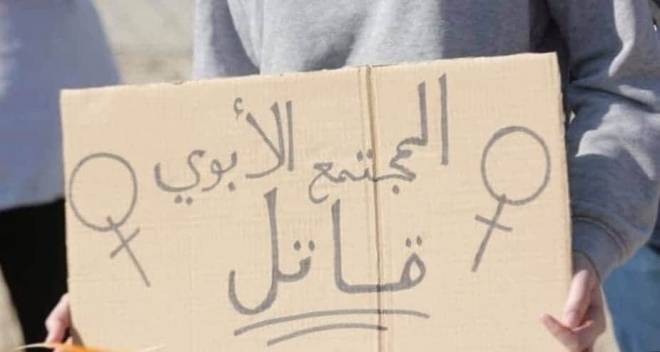 المجتمع الأبوي
قاتل